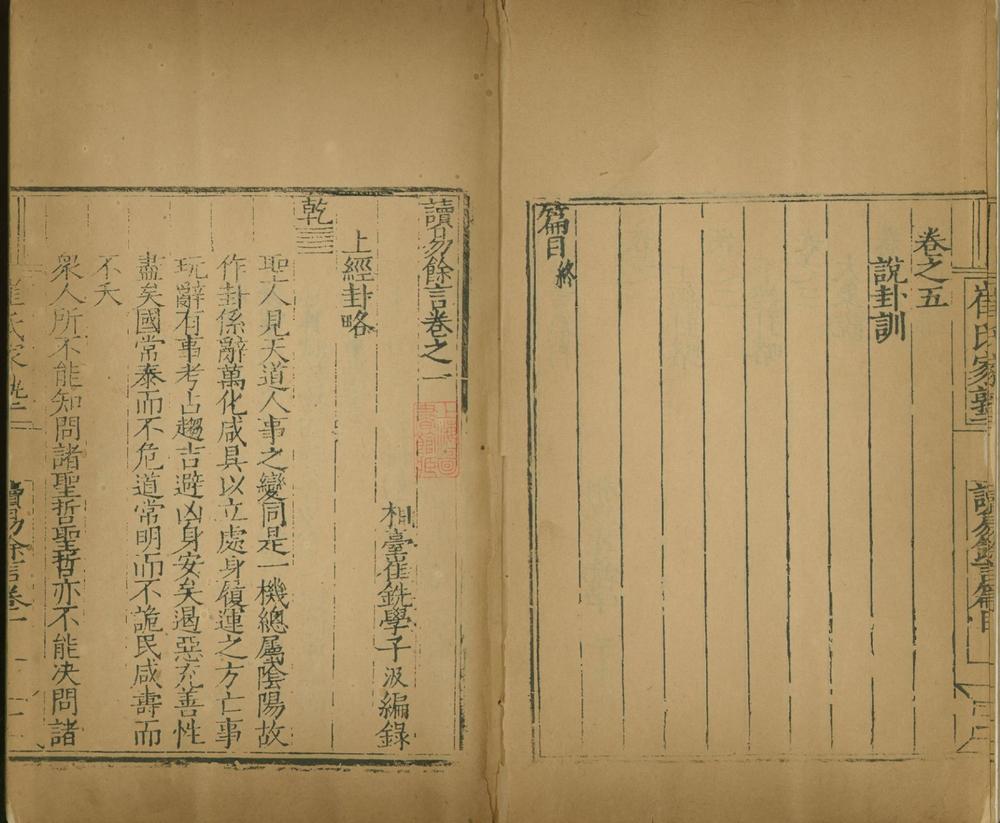 崔氏家塾
讀易餘言篇目
卷之五
說卦訓
篇目終
讀易餘言卷之一
上海圖書館藏
相臺崔銑學子汲編錄
上經卦略
乾䷀
聖人見天道人事之變同是一機總屬陰陽故
作卦係辭萬化咸具以立處身履運之方亡事
玩辭有事考占趨吉避凶身安矣遏惡充善性
盡矣國常泰而不危道常明而不詭民咸壽而
不夭
衆人所不能知問諸聖哲聖哲亦不能决問諸
崔氏家塾
讀易餘言卷一